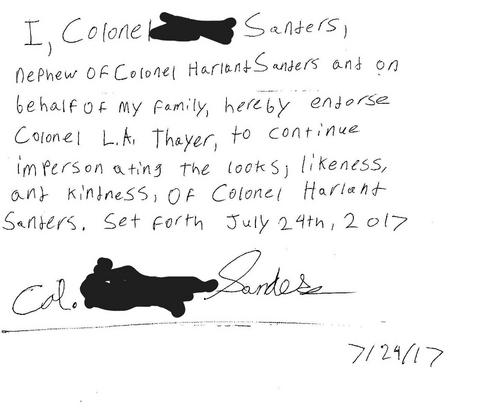 I, Colonel Sanders,
nephew of Colonel Harland Sanders and on
behalf of my family, hereby endorse
Colonel L.A. Thayer, to continue
impersonating the looks, likeness,
and kindness, of Colonel Harland
Sanders. Set forth July 24th, 2017
Col. Sanders
7/24/17